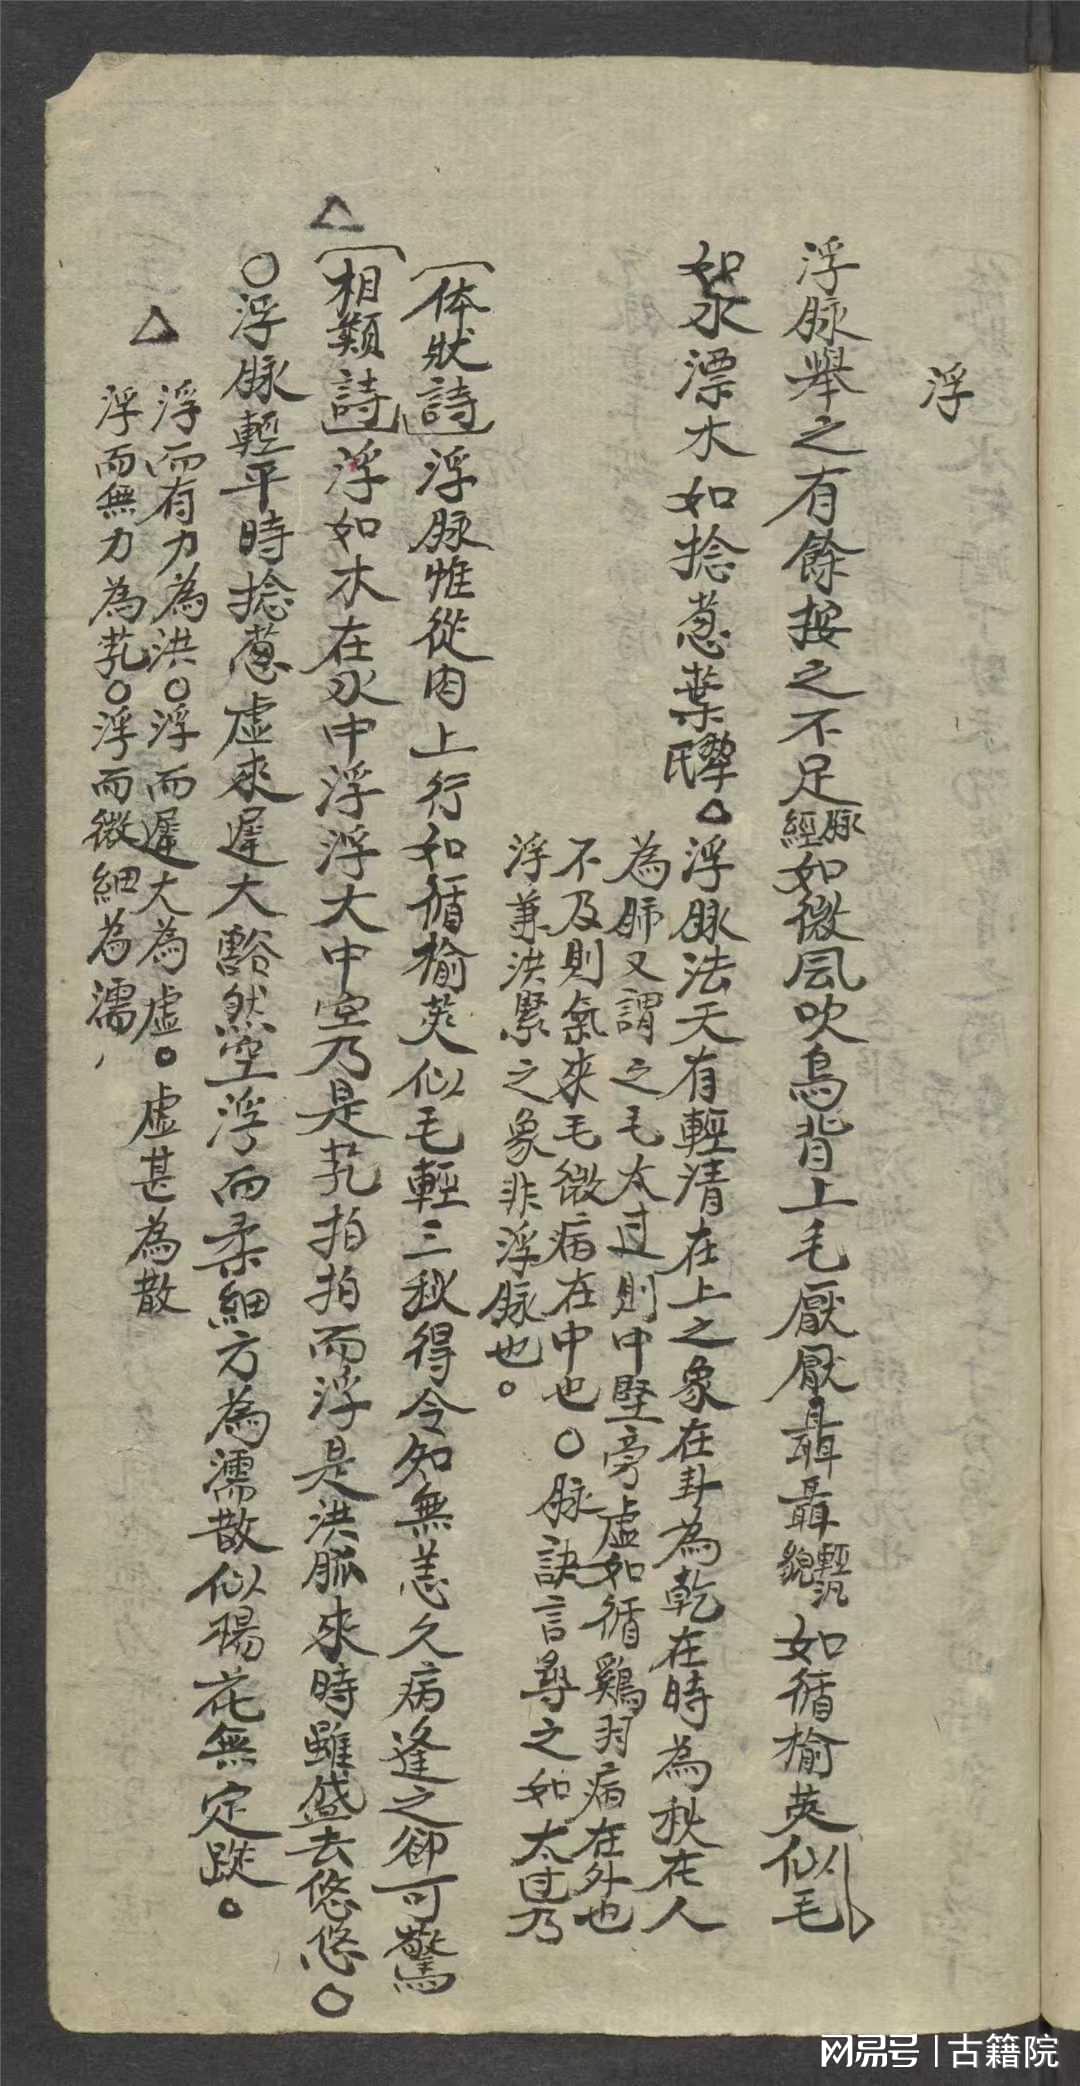 浮
浮脉舉之有餘按之不足脉經如微风吹鳥背上毛厭厭聶聶輕汎貌如循榆莢似毛
如水漂木如捻葱葉黎氏。浮脉法天有輕清在上之象在卦為乾在時為秋在人
為肺又謂之毛太过則中堅旁虛如循鷄羽病在外也
不及則氣來毛微病在中也○脉訣言尋之如太过乃
浮兼洪緊之象非浮脉也。
体狀詩浮脉惟從肉上行如循榆莢似毛輕三秋得令知無恙久病逢之卻可驚
△相類詩浮如木在水中浮浮大中空乃是芤拍拍而浮是洪脈來時雖盛去悠悠○
○浮脉輕平時捻葱虛來遲大豁然空浮而柔細方為濡散似楊花無定踪。
△浮而有力為洪○浮而遲大為虛。虛甚為散
浮而無力為芤○浮而微細為濡
网易号 | 古籍院